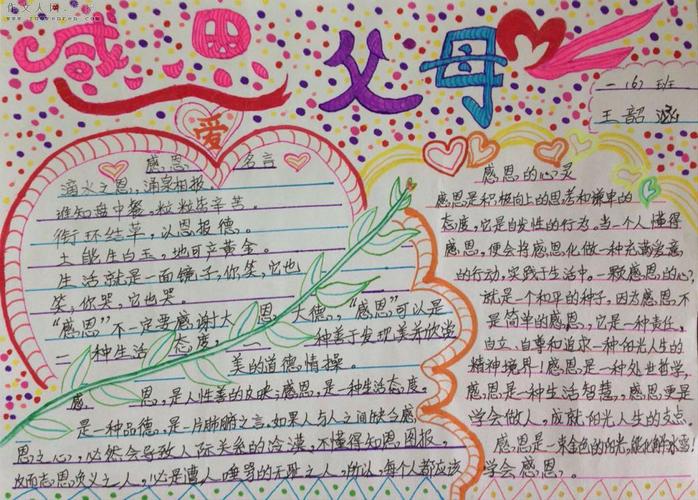 感恩父母
一(6)班
王韶涵
爱
感恩 名言
滴水之恩,涌泉相报
谁知盘中餐,粒粒皆辛苦。
衔环结草,以恩报德。
土能生白玉,地可产黄金。
生活就是一面镜子,你笑,它也
笑,你哭,它也哭。
"感恩"不一定要感谢大恩大德,"感恩"可以是
一种生活态度,一种善于发现美并欣赏
美的道德情操。
感恩,是人性善的反映;感恩,是一种生活态度,
是一种品德,是一片肺腑之言。如果人与人之间缺乏感
恩之心,必然会导致人际关系的冷漠,不懂得知恩图报,
反而忘恩负义之人,必是遭人唾骂的无耻之人,所以,每个人都应该
学会感恩。
感恩的心灵
感恩是积极向上的思考和谦卑的
态度,它是自发性的行为。当一个人懂得
感恩,便会将感恩化做一种充满爱意
的行动,实践于生活中,一颗感恩的心,
就是一个和平的种子,因为感恩不
是简单的感恩,它是一种责任,
自立、自尊和追求一种阳光人生的
精神境界!感恩是一种处世哲学,
感恩是一种生活智慧,感恩更是
学会做人,成就阳光人生的支点。
感恩是一束金色的阳光,能化解冰雪!